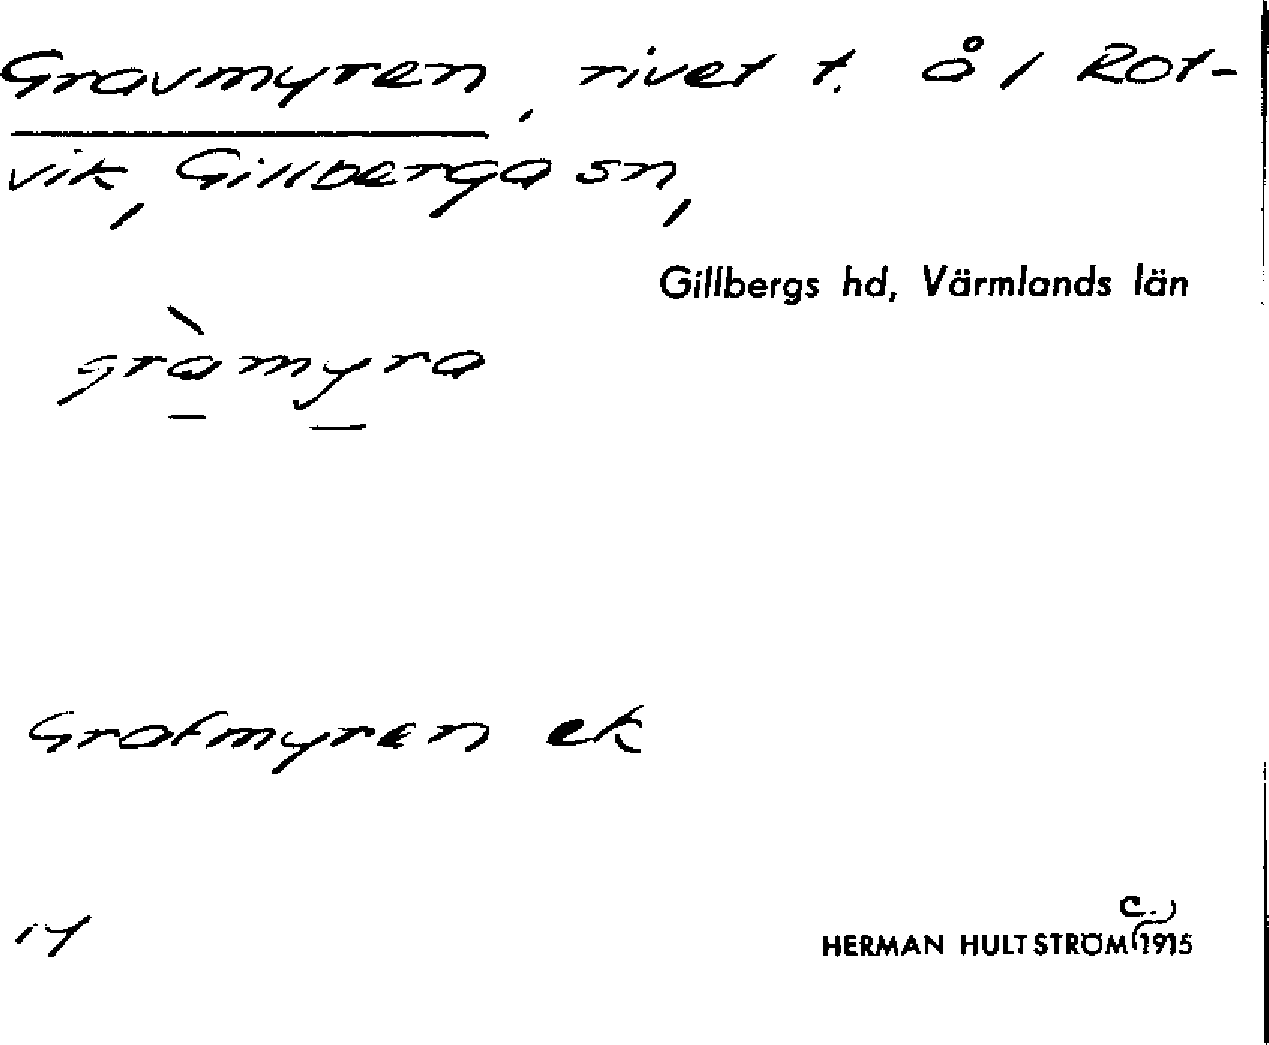 Gravmyren, rivet t. å / Rot-
vik, Gillberga sn,
Gillbergs hd, Värmlands län
gràmyra
Grafmyren ek
14
HERMAN HULTSTRÖM c. 1915